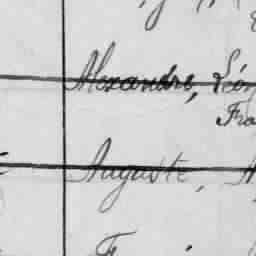 Alexandre, Léon
Fra
Auguste, A